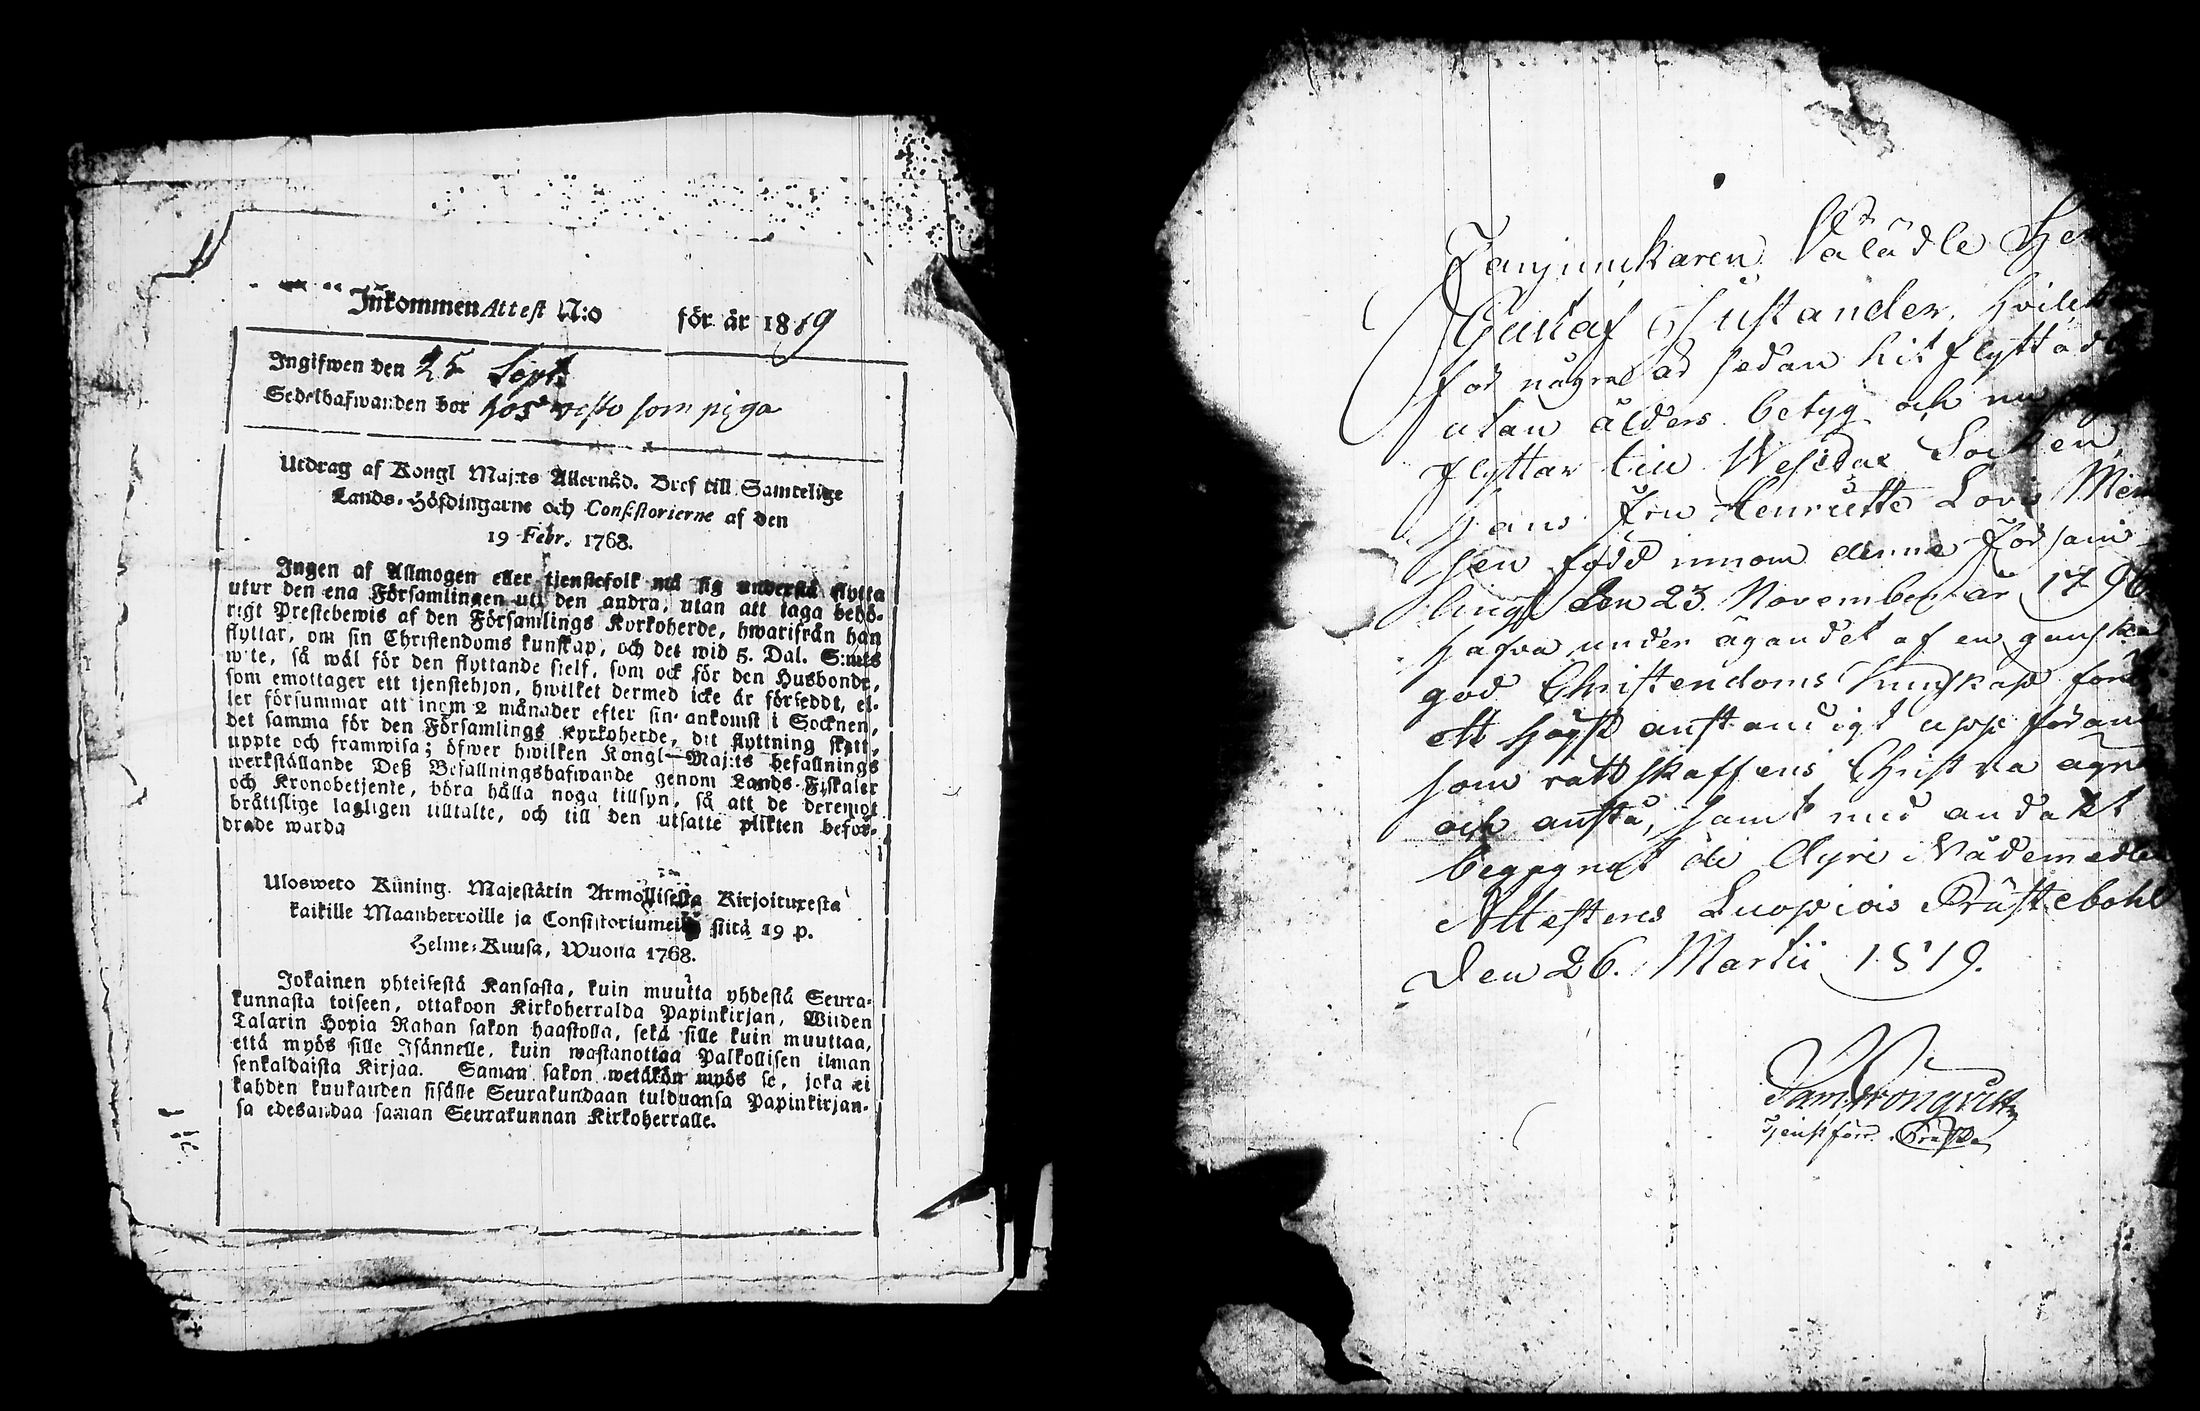 Inkommen Attest N:o för år 1819
Ingifwen den 25 Sept:
Sedelhafwanden bor hos som piga
Utdrag af Kongl Maj:ts Allernåd. Bref till Samtelige
Lands-Höfdingarne och Consistorierne af den
19 Febr. 1768.
Ingen af Allmogen eller tjenstefolk må sig understå flytta
utur den ena Församlingen uti den andra, utan att taga behö-
rigt Prestebewis af den Församlings Kyrkoherde, hwarifrån han
flyttar, om sin Christendoms kunskap, och det wid 5. Dal. S:mts
wite, så wäl för den flyttande sjelf, som ock för den Husbonde,
som emottager ett tjenstehjon, hwilket dermed icke är försedt, el-
ler försummar att inom 2 månader efter sin ankomst i Socknen,
det samma för den Församlings Kyrkoherde, dit flyttning skett,
uppte och framwisa; öfwer hwilken Kongl Maj:ts befallnings
werkställande Deß Befallningshafwande genom Lands-Fiskaler
och Kronobetjente, böra hålla noga tillsyn, så att de deremot
bråttslige lagligen tilltalte, och till den utsatte plikten befor-
drade warda
Ulosweto Kuning. Majestätin Armollisesta Kirjoituxesta
kaikille Maanherroille ja Consistoriumeille siitä 19 p.
Helme-Kuusa, Wuonna 1768.
Jokainen yhteisestä Kansasta, kuin muutta yhdestä Seura-
kunnasta toiseen, ottakoon Kirkoherralda Papinkirjan, Wiiden
Talarin Hopia Rahan sakon haastolla, sekä sille kuin muuttaa,
että myös sille Isännelle, kuin wastanottaa Palkollisen ilman
senkaldaista Kirjaa. Saman sakon wetäkön myös se, joka ei
kahden kuukauden sisälle Seurakundaan tulduansa Papinkirjan-
sa edesandaa saman Seurakunnan Kirkoherralle.
Fanjunckaren Välädle Her
Gustaf hvilken
för några år sedan hit flyttade
utan ålders betyg och nu
flyttar till Socken,
hans Fru Henriette Lovis
sen född innom denna Försam
lingh den 23 November år 1796
hafva under ägandet af en ganska
god Christendoms kunskap fört
ett högst anständigt uppförande
som rättskaffens Christna ägna
och anstå, samt med andakt
begagnat de dyra Nådemedlen
Attesteras Luopiois Prästebohl
den 26. Martii 1819.
Tjenstförr.